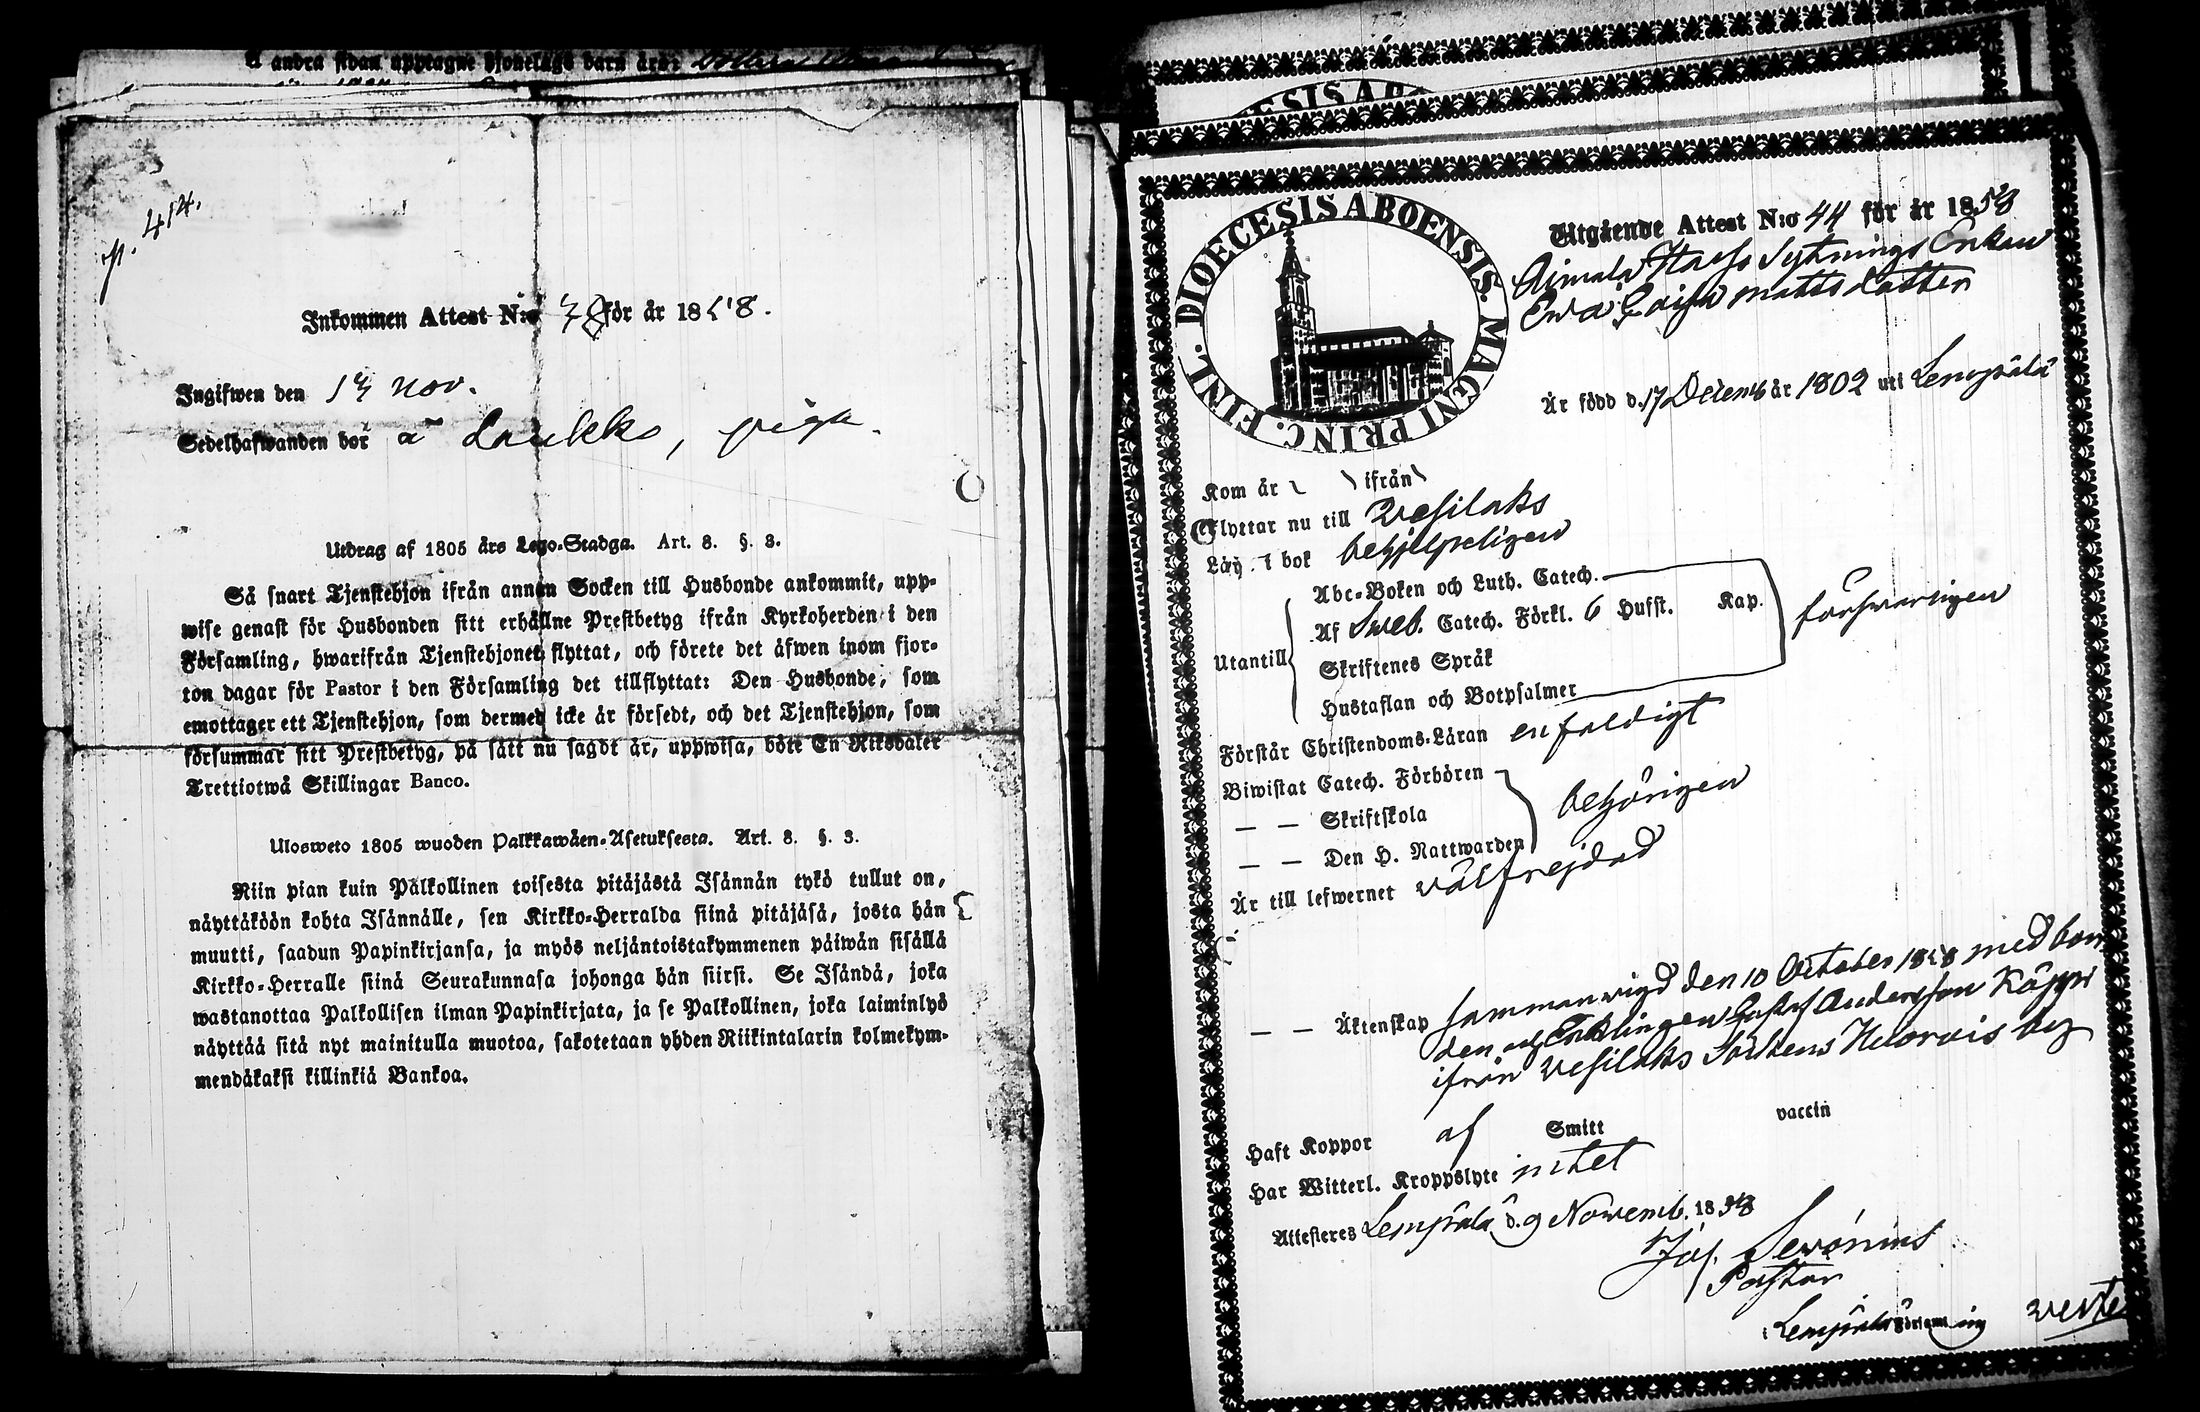 å andra sidan upptagne Hjonelags barn äro:
p. 414.
Inkommen Attest N:o 78 för år 1858.
Ingifwen den 14 Nov.
Sedelhafwanden bor å Laukko, piga.
Utdrag af 1805 års Lego-Stadga. Art. 8. §. 3.
Så snart Tjenstehjon ifrån annan Socken till Husbonde ankommit, upp-
wise genast för Husbonden sitt erhållne Prestbetyg ifrån Kyrkoherden i den
Församling, hwarifrån Tjenstehjonet flyttat, och förete det äfwen inom fjor-
ton dagar för Pastor i den Församling det tillflyttat: Den Husbonde, som
emottager ett Tjenstehjon, som dermed icke är försedt, och det Tjenstehjon, som
försummar sitt Prestbetyg, på sätt nu sagdt är, uppwisa, böte En Riksdaler
Trettiotwå Skillingar Banco.
Ulosweto 1805 wuoden Palkkawäen-Asetuksesta. Art. 8. §. 3.
Niin pian kuin Palkollinen toisesta pitäjästä Isännän tykö tullut on,
näyttäköön kohta Isännälle, sen Kirkko-Herralda siinä pitäjäsä, josta hän
muutti, saadun Papinkirjansa, ja myös neljäntoistakymmenen päiwän sisällä
Kirkko-Herralle siinä Seurakunnasa johonga hän siirsi. Se Isändä, joka
wastanottaa Palkollisen ilman Papinkirjata, ja se Palkollinen, joka laiminlyö
näyttää sitä nyt mainitulla muotoa, sakotetaan yhden Riikintalarin kolmekym-
mendäkaksi killinkiä Bankoa.
DIOECESIS ABOENSIS. MAGNI PRINC. FINL.
Utgående Attest N:o 44 för år 1858
Aimala Sytnings Enkan
Ewa Caisa Matts dotter
Är född d. 17 Decemb år 1802 uti Lempäälä
Kom år ifrån
Flyttar nu till Vesilaks
Läs. i bok behjelpeligen
Utantill
Abc-Boken och Luth. Catech.
Af Sweb. Catech. Förkl. 6 Hufst. Kap.
Skriftenes Språk
Hustaflan och Botpsalmer
försvarligen
Förstår Christendoms-Läran enfaldigt
Biwistat Catech. Förhören
— — Skriftskola
— — Den H. Nattwarden
behörigen
Är till lefwernet välfrejdad
— — Äktenskap sammanvigd den 10 October 1858 med bon-
den och Enklingen Gustaf Andersson Käppi
ifrån Vesilaks Sockens by
Haft Koppor af Smitt vaccin
Har Witterl. Kroppslyte intet
Attesteres Lempäälä d. 9 Novemb. 1858
Jos. Serónius
Pastor
i Lempäälä Församling
verte